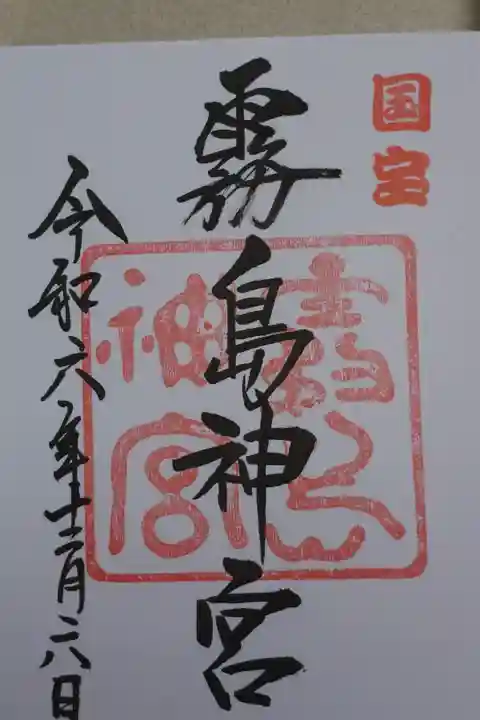 国宝
霧島神宮
令和六年十二月二八日
霧島神宮